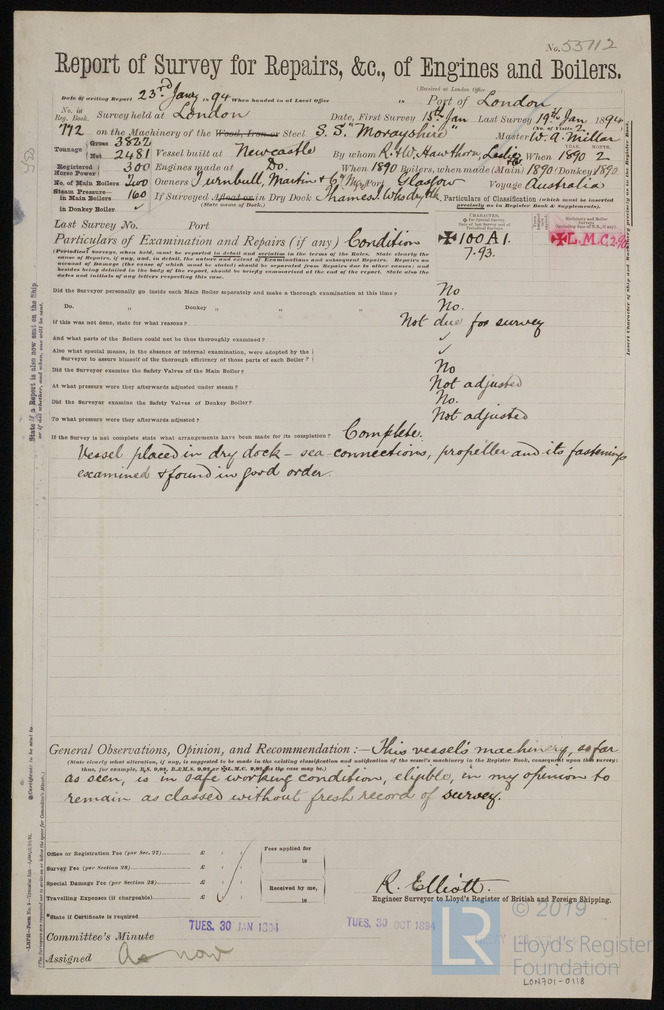 No. 55112
Report of Survey for Repairs, &c., of Engines and Boilers.
(Received at London Office
Date of writing Report 23rd Jany 1894 When handed in at Local Office 18 Port of London
No. in Reg. Book. Survey held at London Date, First Survey 15th Jan Last Survey 19th Jan 1894
(No. of Visits 2)
772 on the Machinery of the Wood, Iron or Steel S. S. "Morayshire" Master W. A. Millar
Tonnage Gross 3822
Net 2481 Vessel built at Newcastle By whom R. & W. Hawthorn, Leslie When 1890 2
YEAR. MONTH.
Registered Horse Power 300 Engines made at Do. When 1890 Boilers, when made (Main) 1890 (Donkey) 1890
No. of Main Boilers Owners Turnbull, Martin & Co. Port Glasgow Voyage Australia
Steam Pressure— in Main Boilers 160 If Surveyed Afloat or in Dry Dock Thames
(State name of Dock.)
in Donkey Boiler ✓
Particulars of Classification (which must be inserted precisely as in Register Book & Supplements).
Last Survey No. Port
CHARACTER.
Particulars of Examination and Repairs (if any) Condition
✠100A1.
7.93.
✠L.M.C 2.90
(Periodical surveys, when held, must be reported in detail and seriatim in the terms of the Rules. State clearly the
cause of Repairs, if any, and, in detail, the nature and extent of Examinations and subsequent Repairs. Repairs on
account of Damage (the cause of which must be stated) should be separated from Repairs due to other causes; and
besides being detailed in the body of the report, should be briefly summarised at the end of the report. State also the
dates and initials of any letters respecting this case.
Did the Surveyor personally go inside each Main Boiler separately and make a thorough examination at this time? No
Do. „ Donkey „ „ „ No.
If this was not done, state for what reasons? Not due for survey
And what parts of the Boilers could not be thus thoroughly examined? ✓
Also what special means, in the absence of internal examination, were adopted by the
Surveyor to assure himself of the thorough efficiency of those parts of each Boiler? ✓
Did the Surveyor examine the Safety Valves of the Main Boiler? No
At what pressure were they afterwards adjusted under steam? Not adjusted
Did the Surveyor examine the Safety Valves of Donkey Boiler? No.
To what pressure were they afterwards adjusted? Not adjusted
If the Survey is not complete state what arrangements have been made for its completion? Complete.
Vessel placed in dry dock – sea connections, propeller and its fastenings
examined & found in good order.
General Observations, Opinion, and Recommendation :— This vessel's machinery, so far
(State clearly what alteration, if any, is suggested to be made in the existing classification and notification of the vessel's machinery in the Register Book, consequent upon this survey;
as seen, is in safe working condition, eligible, in my opinion to
remain as classed without fresh record of survey.
Office or Registration Fee (per Sec. 27) £ : :
Survey Fee (per Section 28) £ : :
Special Damage Fee (per Section 28) £ : :
Travelling Expenses (if chargeable) £ : :
Fees applied for
18
Received by me,
18
R. Elliott.
Engineer Surveyor to Lloyd's Register of British and Foreign Shipping.
*State if Certificate is required
TUES. 30 JAN 1894
TUES. 30 OCT 1894
Committee's Minute
Assigned As now
State if a Report is also now sent on the Ship
© 2019
LR
Lloyd's Register
Foundation
LON701-0118